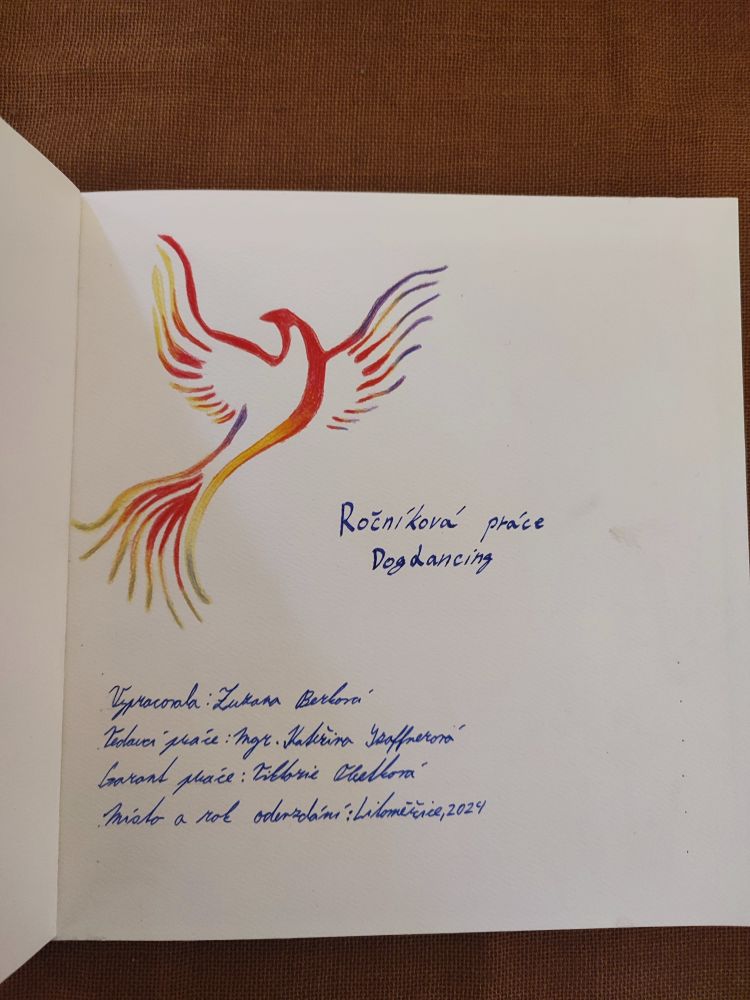 Ročníková práce
Dogdancing
Vypracovala: Zuzana Berková
Vedoucí práce: Mgr. Kateřina
Garant práce: Viktorie
Místo a rok odevzdání: Litoměřice, 2024